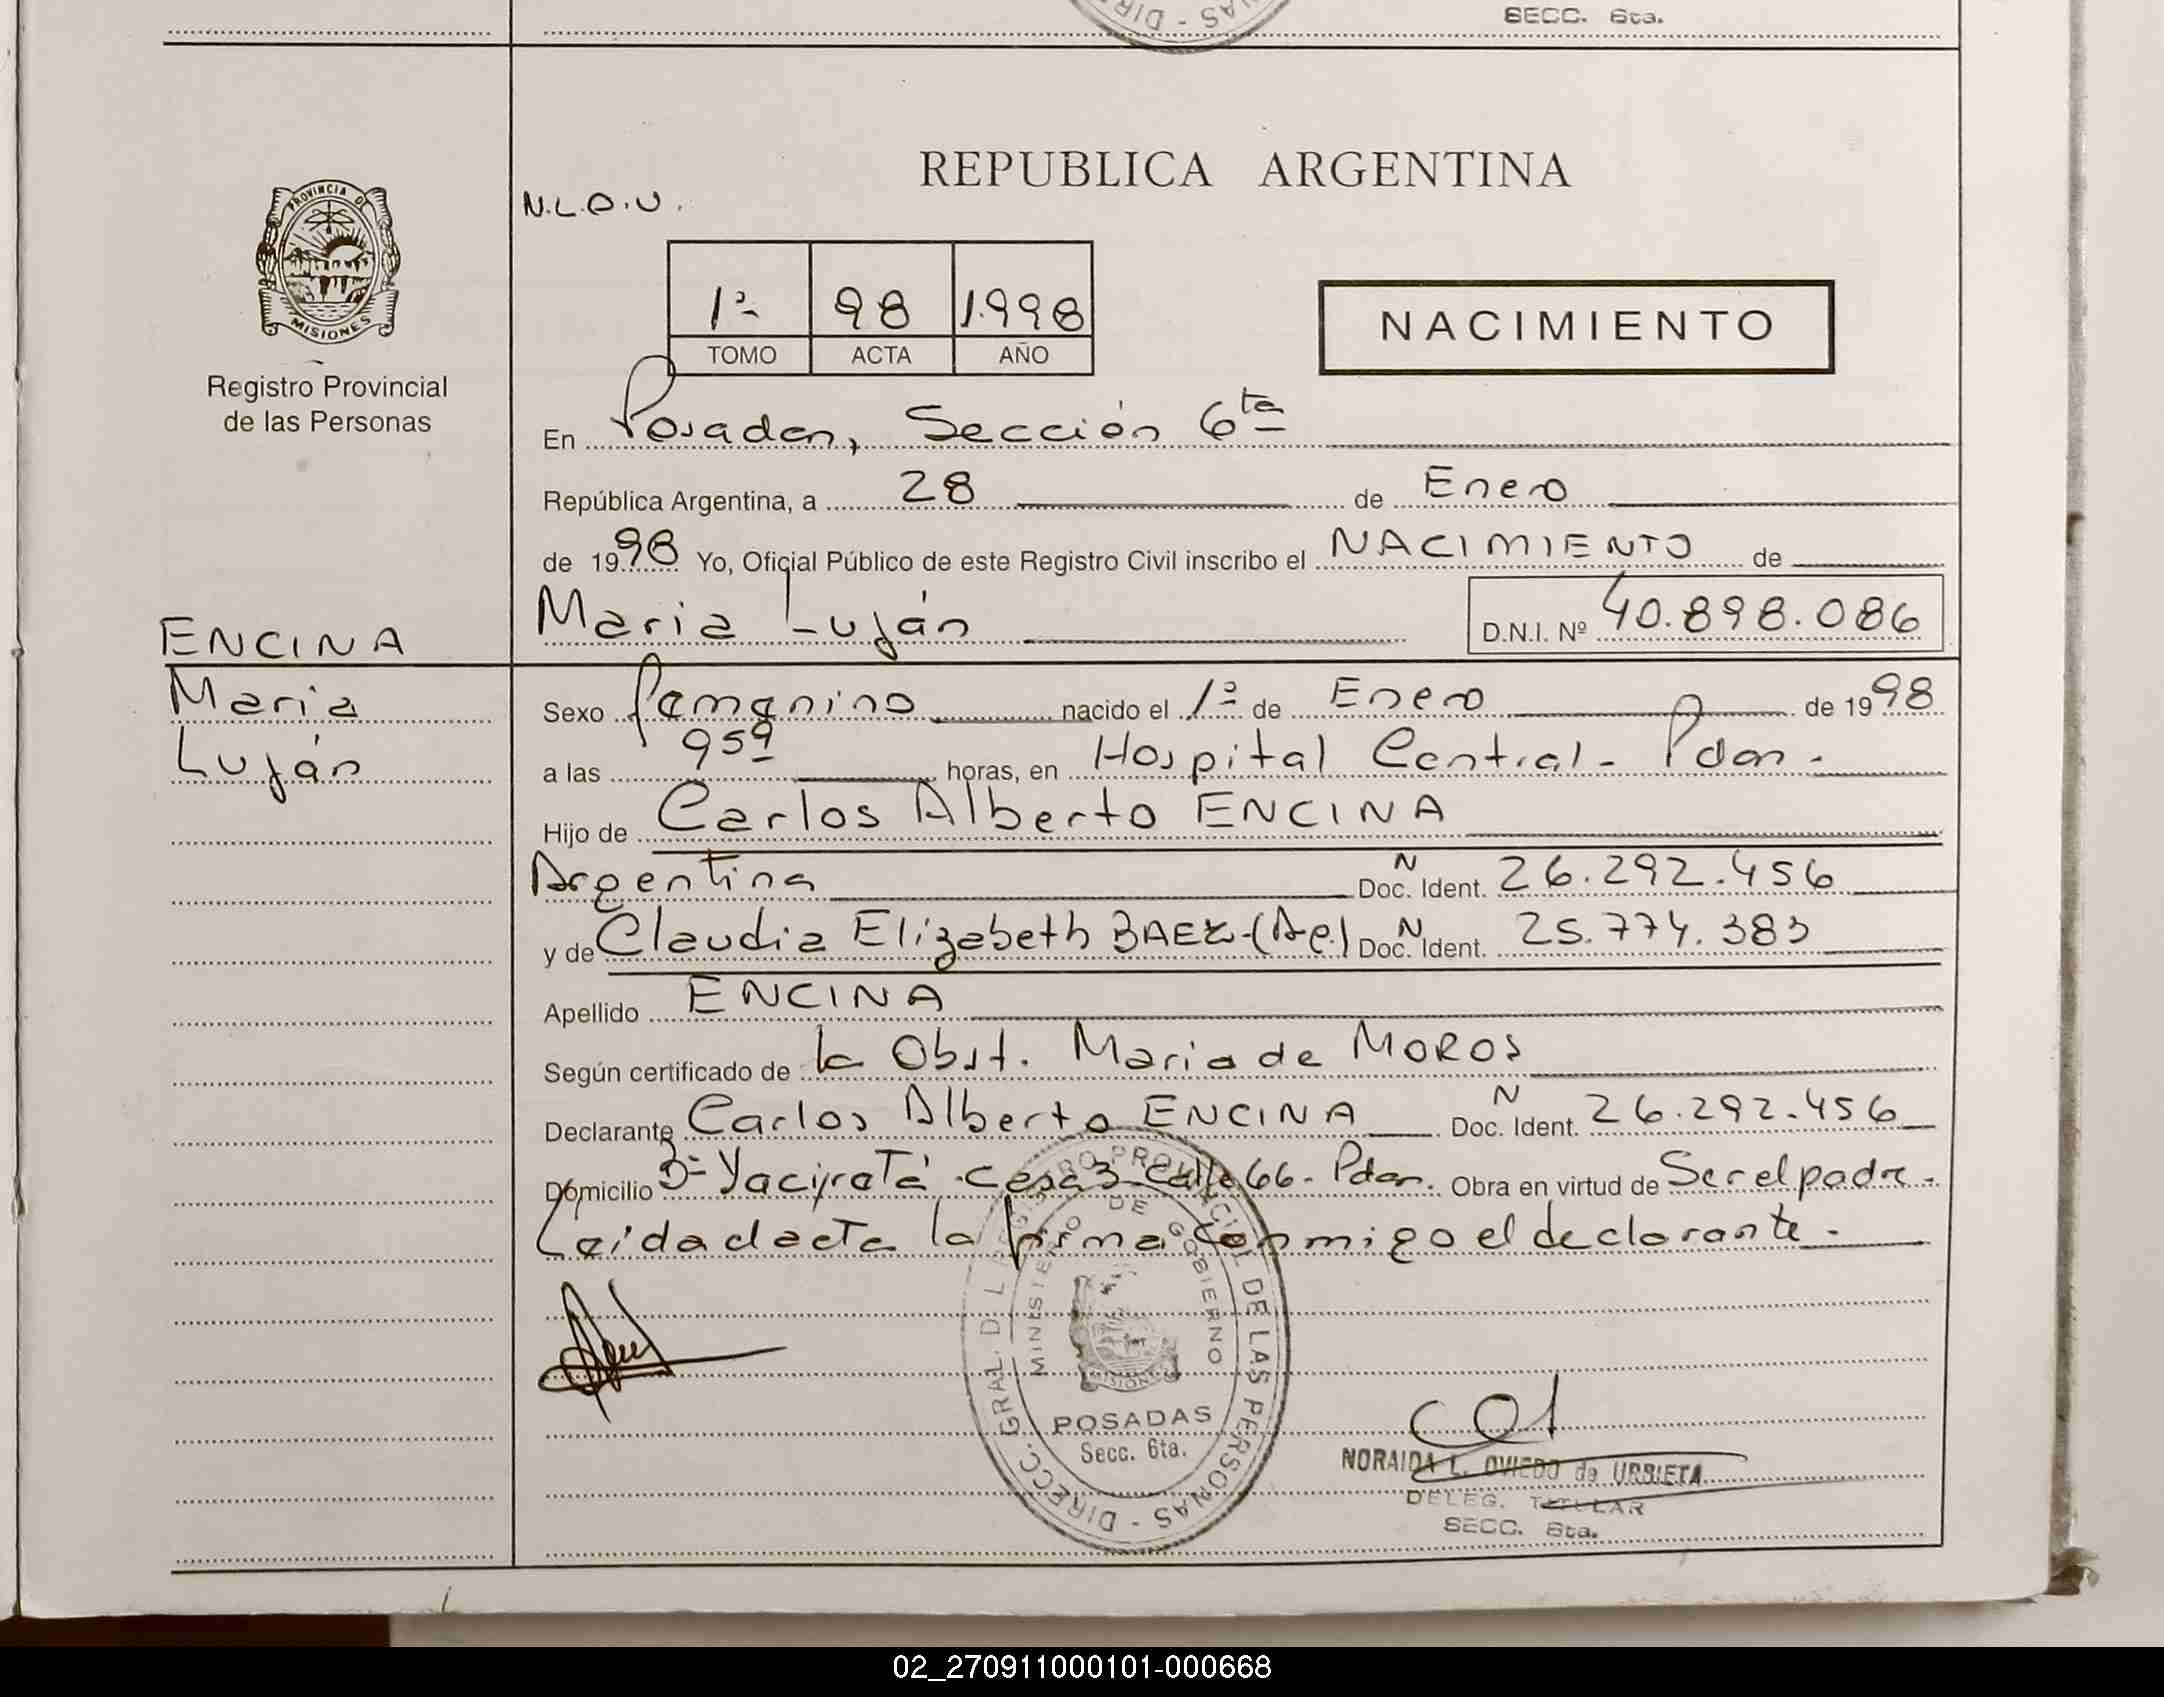 SECC. 6ta.
PROVINCIA DE
MISIONES
Registro Provincial
de las Personas
REPUBLICA ARGENTINA
1º 98 1.998
TOMO ACTA AÑO
NACIMIENTO
En Posadas, Sección 6ta
República Argentina, a 28 de Enero
de 1998 Yo, Oficial Público de este Registro Civil inscribo el NACIMIENTO de
Maria Luján D.N.I. Nº 40.898.086
ENCINA
Maria
Luján
Sexo femenino nacido el 1º de Enero de 1998
a las horas, en Hospital Central - Pdas.
Hijo de Carlos Alberto ENCINA
Argentina N Doc. Ident. 26.292.456
y de Claudia Elizabeth BAEZ-(Ag.) N Doc. Ident. 25.774.383
Apellido ENCINA
Según certificado de la Obst. Maria de MOROS
Declarante Carlos Alberto ENCINA N Doc. Ident. 26.292.456
Domicilio Bº Yacyretá Casa 3 Calle 66 - Pdas. Obra en virtud de Ser el padre.
Leída el acta la firma conmigo el declarante.
DIRECC. GRAL. DEL REGISTRO PROVINCIAL DE LAS PERSONAS -
MINISTERIO DE GOBIERNO
MISIONES
POSADAS
Secc. 6ta.
NORAIDA L. OVIEDO de URBIETA
DELEG. TITULAR
SECC. 6ta.
02_270911000101-000668